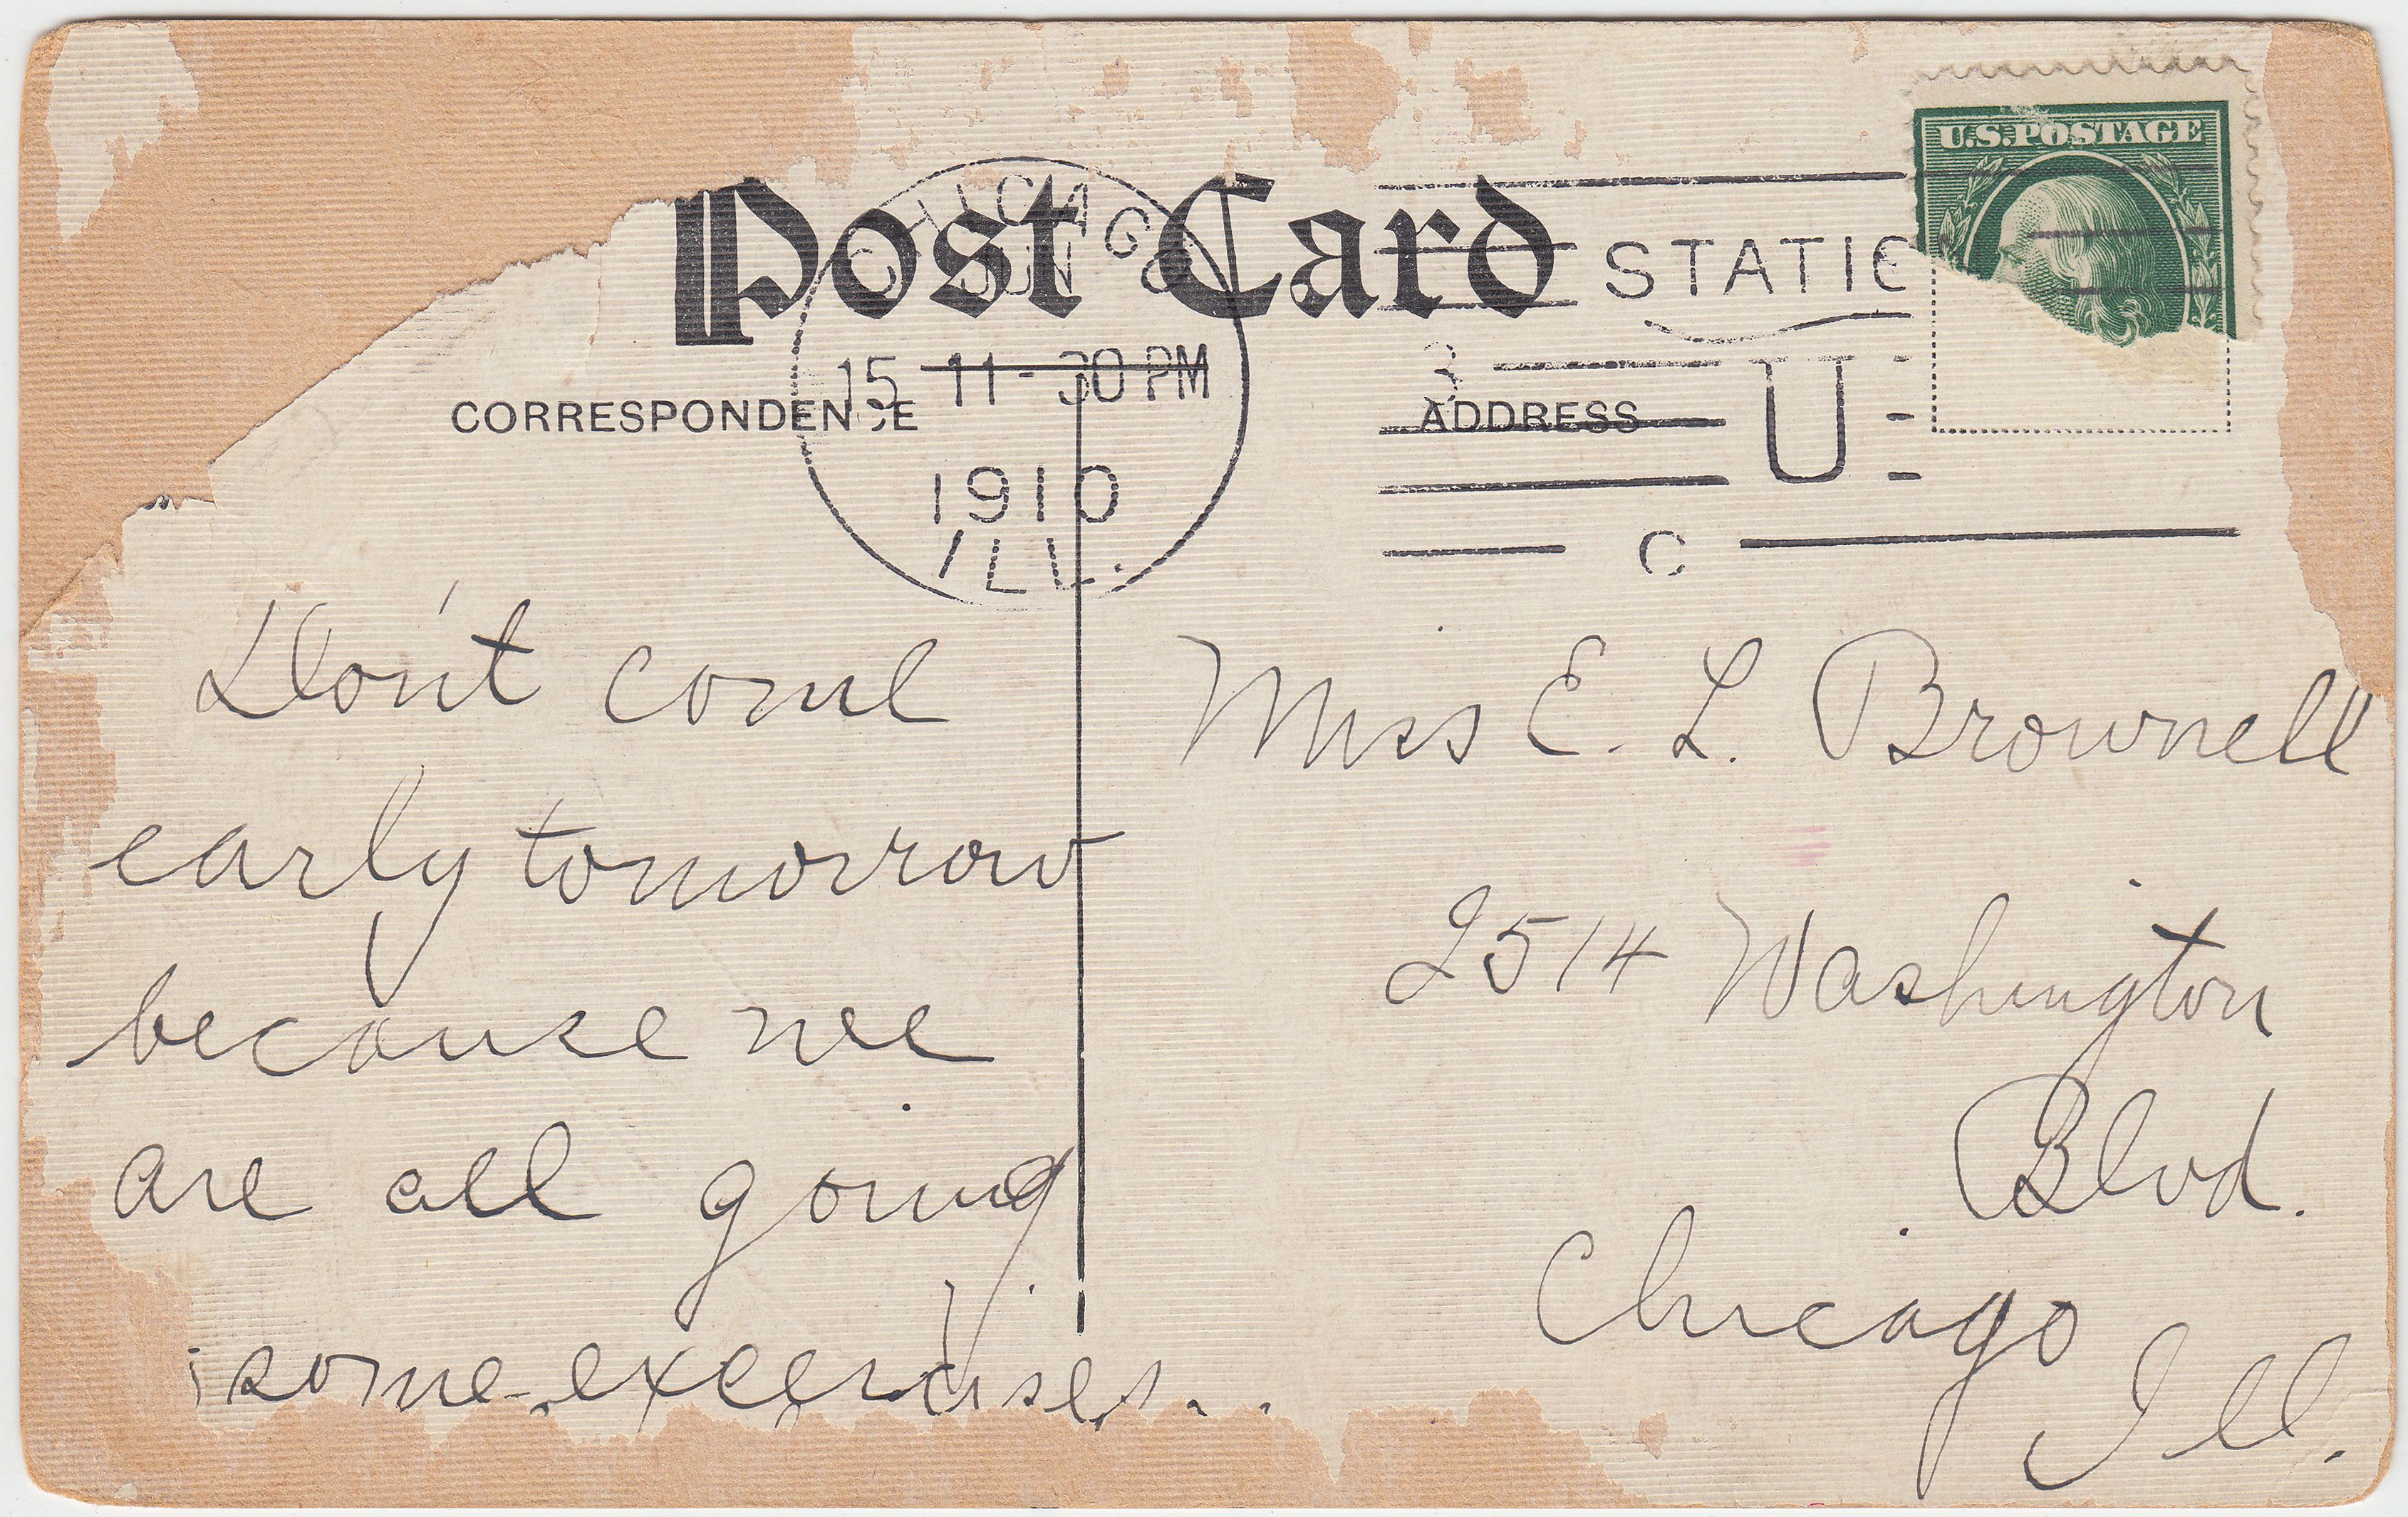 Post Card
CHICAGO
JUN
15 11-30 PM
1910
ILL.
STATIO
3
U
C
U.S. POSTAGE
CORRESPONDENCE
ADDRESS
Don't come
early tomorrow
because we
are all going
some excercises.
Miss E. L. Brownell
2514 Washington
Blvd.
Chicago
Ill.